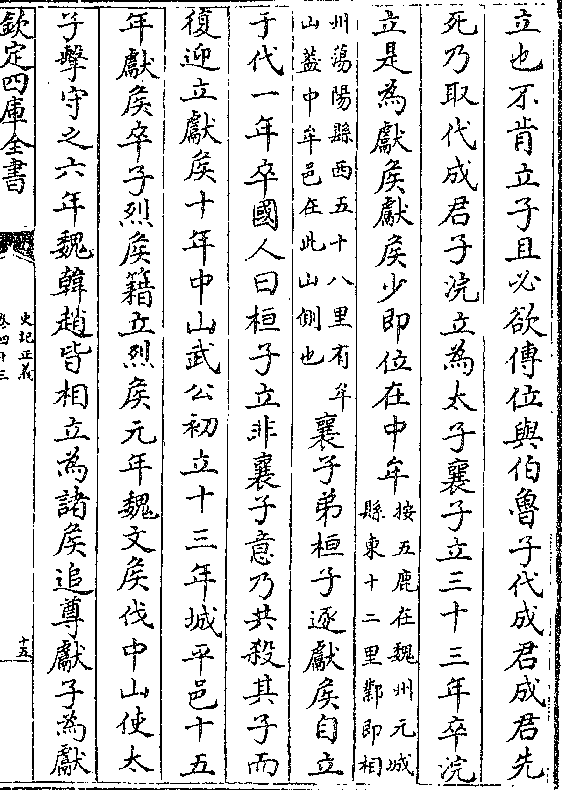 立也不肯立子且必欲傳位與伯魯子代成君成君先
死乃取代成君子浣立為太子襄子立三十三年卒浣
立是為獻侯獻侯少即位在中牟按五鹿在魏州元城縣東十二里鄴即相
州蕩陽縣西五十八里有牟山蓋中牟邑在此山側也襄子弟桓子逐獻侯自立
于代一年卒國人曰桓子立非襄子意乃共殺其子而
復迎立獻侯十年中山武公初立十三年城平邑十五
年獻侯卒子烈侯籍立烈侯元年魏文侯伐中山使太
子擊守之六年魏韓趙皆相立為諸侯追尊獻子為獻
欽定四庫全書
史記正義
卷四十三
十五